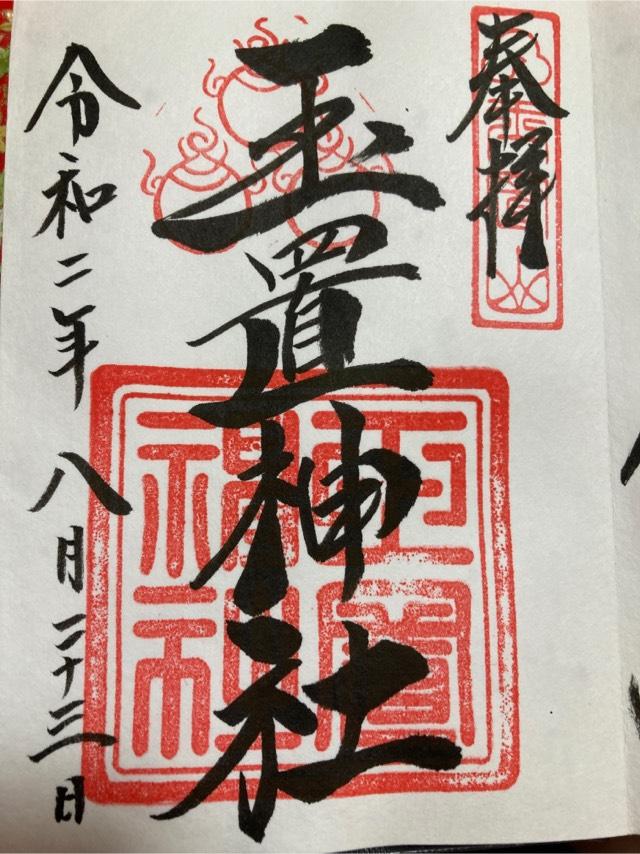 奉拝
玉置神社
令和二年 八月二十三日